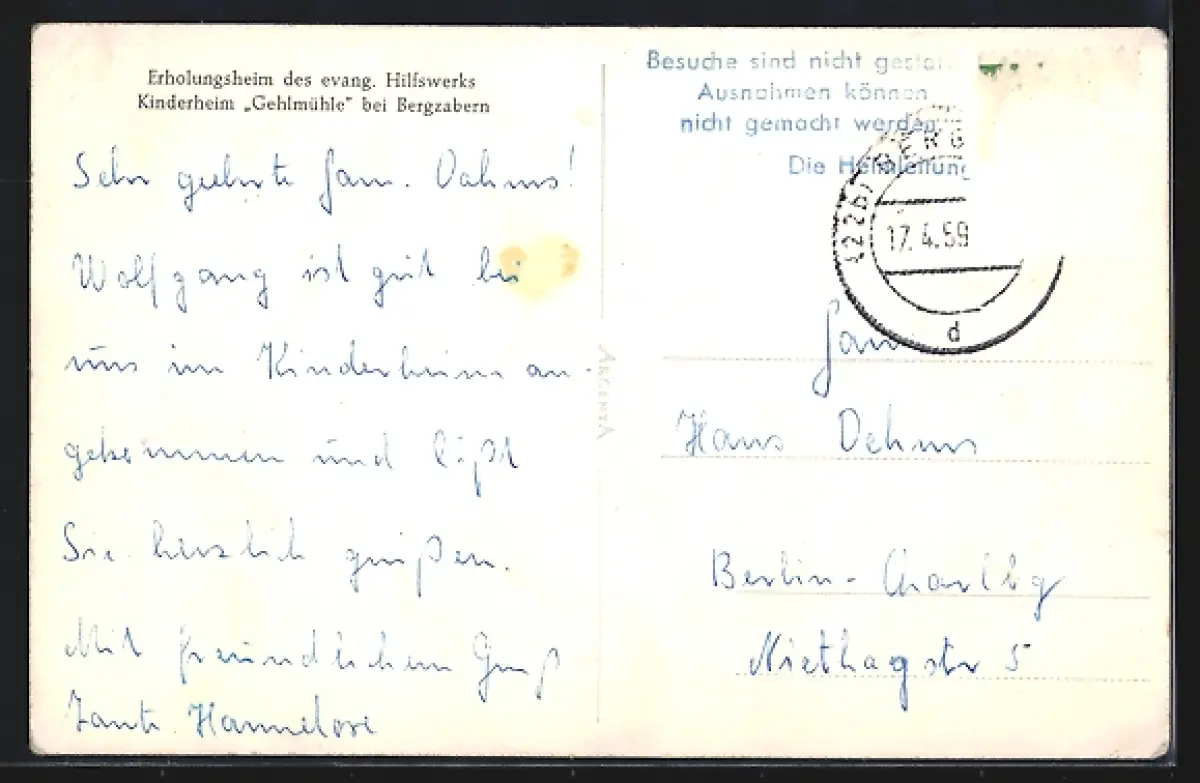 Erholungsheim des evang. Hilfswerks
Kinderheim „Gehlmühle" bei Bergzabern
Sehr geehrte Fam. Dahms!
Wolfgang ist gut bei
uns im Kinderheim an-
gekommen und läßt
Sie herzlich grüßen.
Mit freundlichem Gruß
Tante Hannelore
ARGENTA
Besuche sind nicht
Ausnahmen können
nicht gemacht werden.
Die Heimleitung
(22b) BERG
17.4.59
d
Fam
Hans Dehms
Berlin-Charlbg
Niethagstr 5